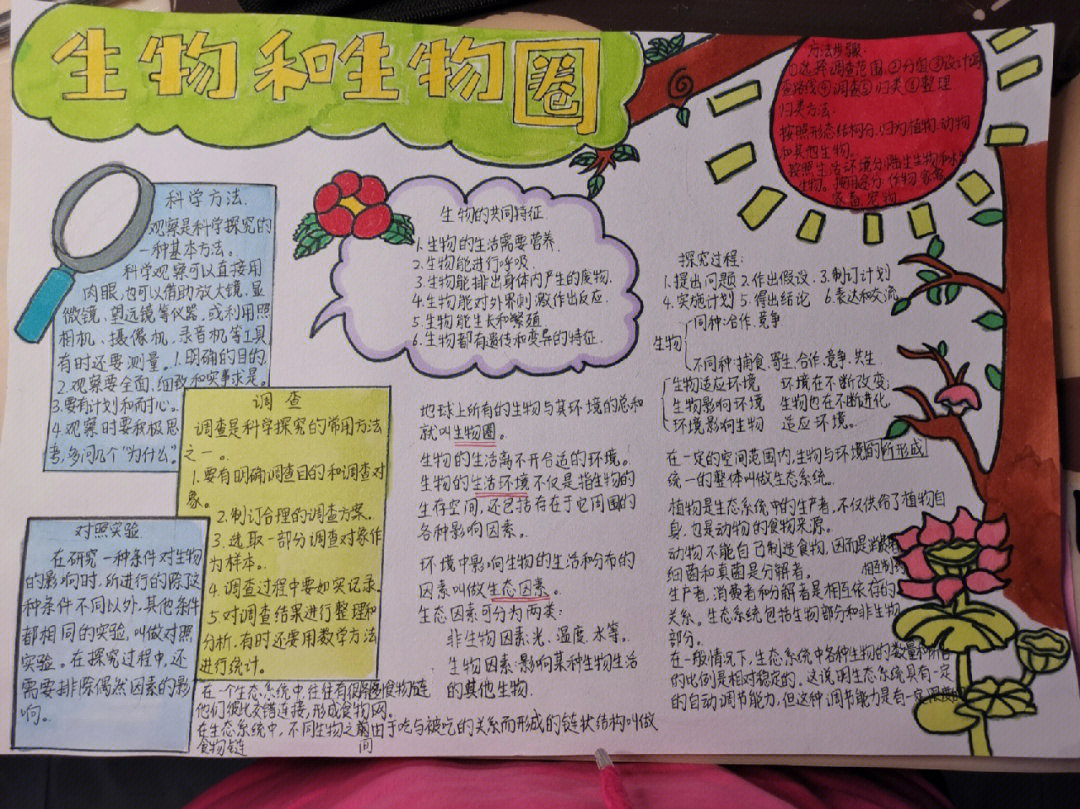 生物和生物圈
科学方法.
观察是科学探究的
一种基本方法。
科学观察可以直接用
肉眼,也可以借助放大镜.显
微镜、望远镜等仪器,或利用照
相机、摄像机、录音机等工具
有时还要测量。1.明确的目的
2.观察要全面.细致和实事求是。
3.要有计划和耐心。
4.观察时要积极思
考,多问几个"为什么"。
调查
调查是科学探究的常用方法
之一。
1.要有明确调查目的和调查对
象。
2.制订合理的调查方案。
3.选取一部分调查对象作
为样本。
4.调查过程中要如实记录.
5.对调查结果进行整理和
分析.有时还要用数学方法
进行统计。
对照实验.
在研究一种条件对生物
的影响时,所进行的除这
种条件不同以外,其他条件
都相同的实验,叫做对照
实验。在探究过程中,还
需要排除偶然因素的影
响。
生物的共同特征.
1.生物的生活需要营养.
2.生物能进行呼吸.
3.生物能排出身体内产生的废物.
4.生物能对外界刺激作出反应.
5.生物能生长和繁殖
6.生物都有遗传和变异的特征.
地球上所有的生物与其环境的总和
就叫生物圈。
生物的生活离不开合适的环境。
生物的生活环境不仅是指生物的
生存空间,还包括存在于它周围的
各种影响因素。
环境中影响生物的生活和分布的
因素叫做生态因素。
生态因素可分为两类:
非生物因素:光、温度、水等。
生物因素:影响某种生物生活
的其他生物.
在一个生态系统中,往往有很多食物链
他们彼此交错连接,形成食物网。
在生态系统中,不同生物之间由于吃与被吃的关系而形成的链状结构叫做
食物链
方法步骤:
①选择调查范围②分组③设计调
查路线④调查⑤归类⑥整理
归类方法:
按照形态结构分,归为植物.动物
和其他生物.
按照生活环境分,陆生生物和水生
生物。按用途分作物.家禽
家畜.宠物
探究过程:
1.提出问题 2.作出假设. 3.制订计划
4.实施计划 5.得出结论 6.表达和交流
同种:合作.竞争
生物
不同种:捕食.寄生.合作.竞争.共生
生物适应环境 环境在不断改变;
生物影响环境 生物也在不断进化,
环境影响生物 适应环境。
在一定的空间范围内,生物与环境的所形成
统一的整体叫做生态系统。
植物是生态系统中的生产者,不仅供给了植物自
身.也是动物的食物来源。
动物不能自己制造食物,因而是消费者
细菌和真菌是分解者。
生产者,消费者和分解者是相互依存的
关系。生态系统包括生物部分和非生物
部分。
在一般情况下,生态系统中各种生物的数量和所占
的比例是相对稳定的。这说明生态系统具有一定
的自动调节能力,但这种调节能力是有一定限度的